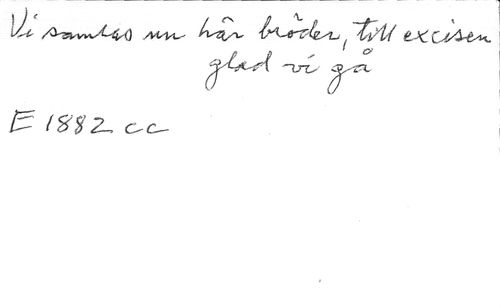 Vi samlas nu här bröder, till excisen
glad vi gå
E 1882 cc